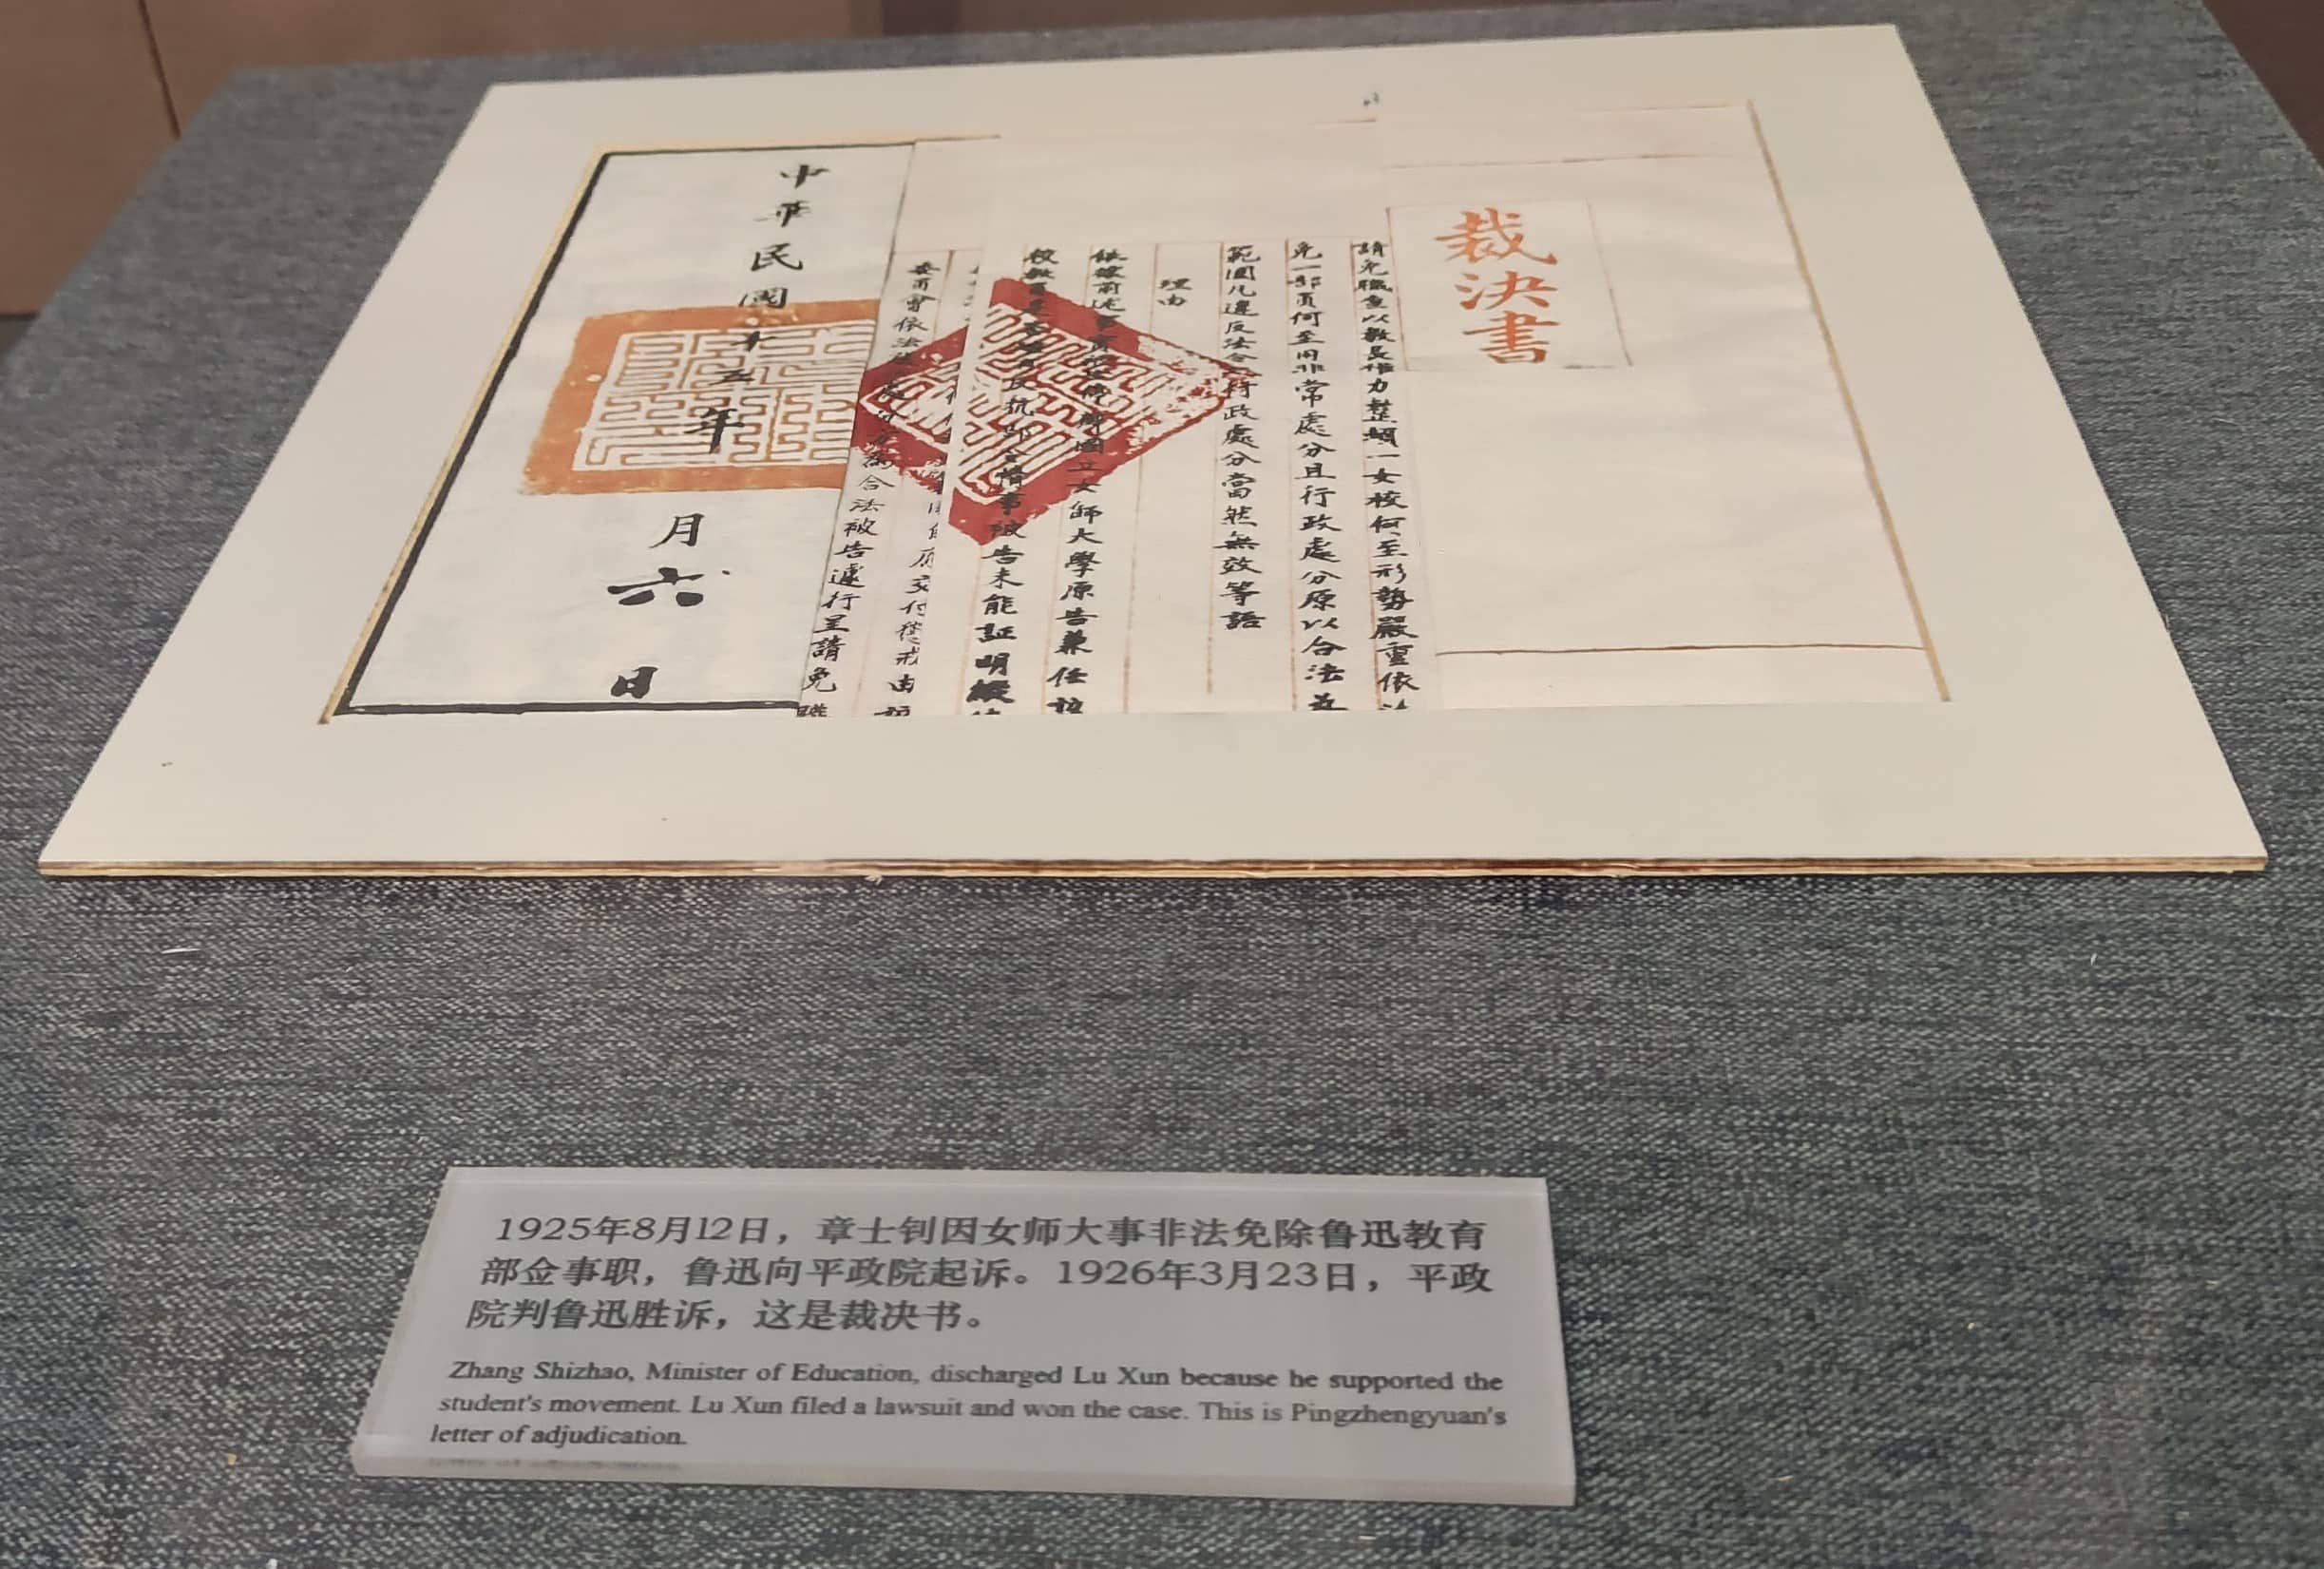 裁決書
請免職查以教長權力整頓一女校何至形勢嚴重依法
免一部員何至用非常處分且行政處分原以合法為
範圍凡違反法令之行政處分當然無效等語
理由
依據前述事實被告停辦國立女師大學原告兼任該
校教員是否確有反抗部令情事被告未能証明縱使
交付懲戒由
委員會依法議處分方為合法被告遽行呈請免職
中華民國十五年
月六日
1925年8月12日，章士钊因女师大事非法免除鲁迅教育
部佥事职，鲁迅向平政院起诉。1926年3月23日，平政
院判鲁迅胜诉，这是裁决书。
Zhang Shizhao, Minister of Education, discharged Lu Xun because he supported the
student's movement. Lu Xun filed a lawsuit and won the case. This is Pingzhengyuan's
letter of adjudication.